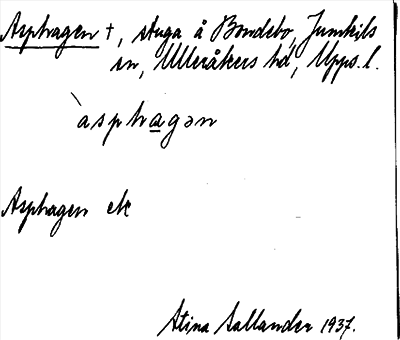 Asphagen †, stuga å Bondebo, Jumkils
sn, Ulleråkers hd, Upps. l.
`asphagən
Asphagen ek
Stina Sallander 1937.